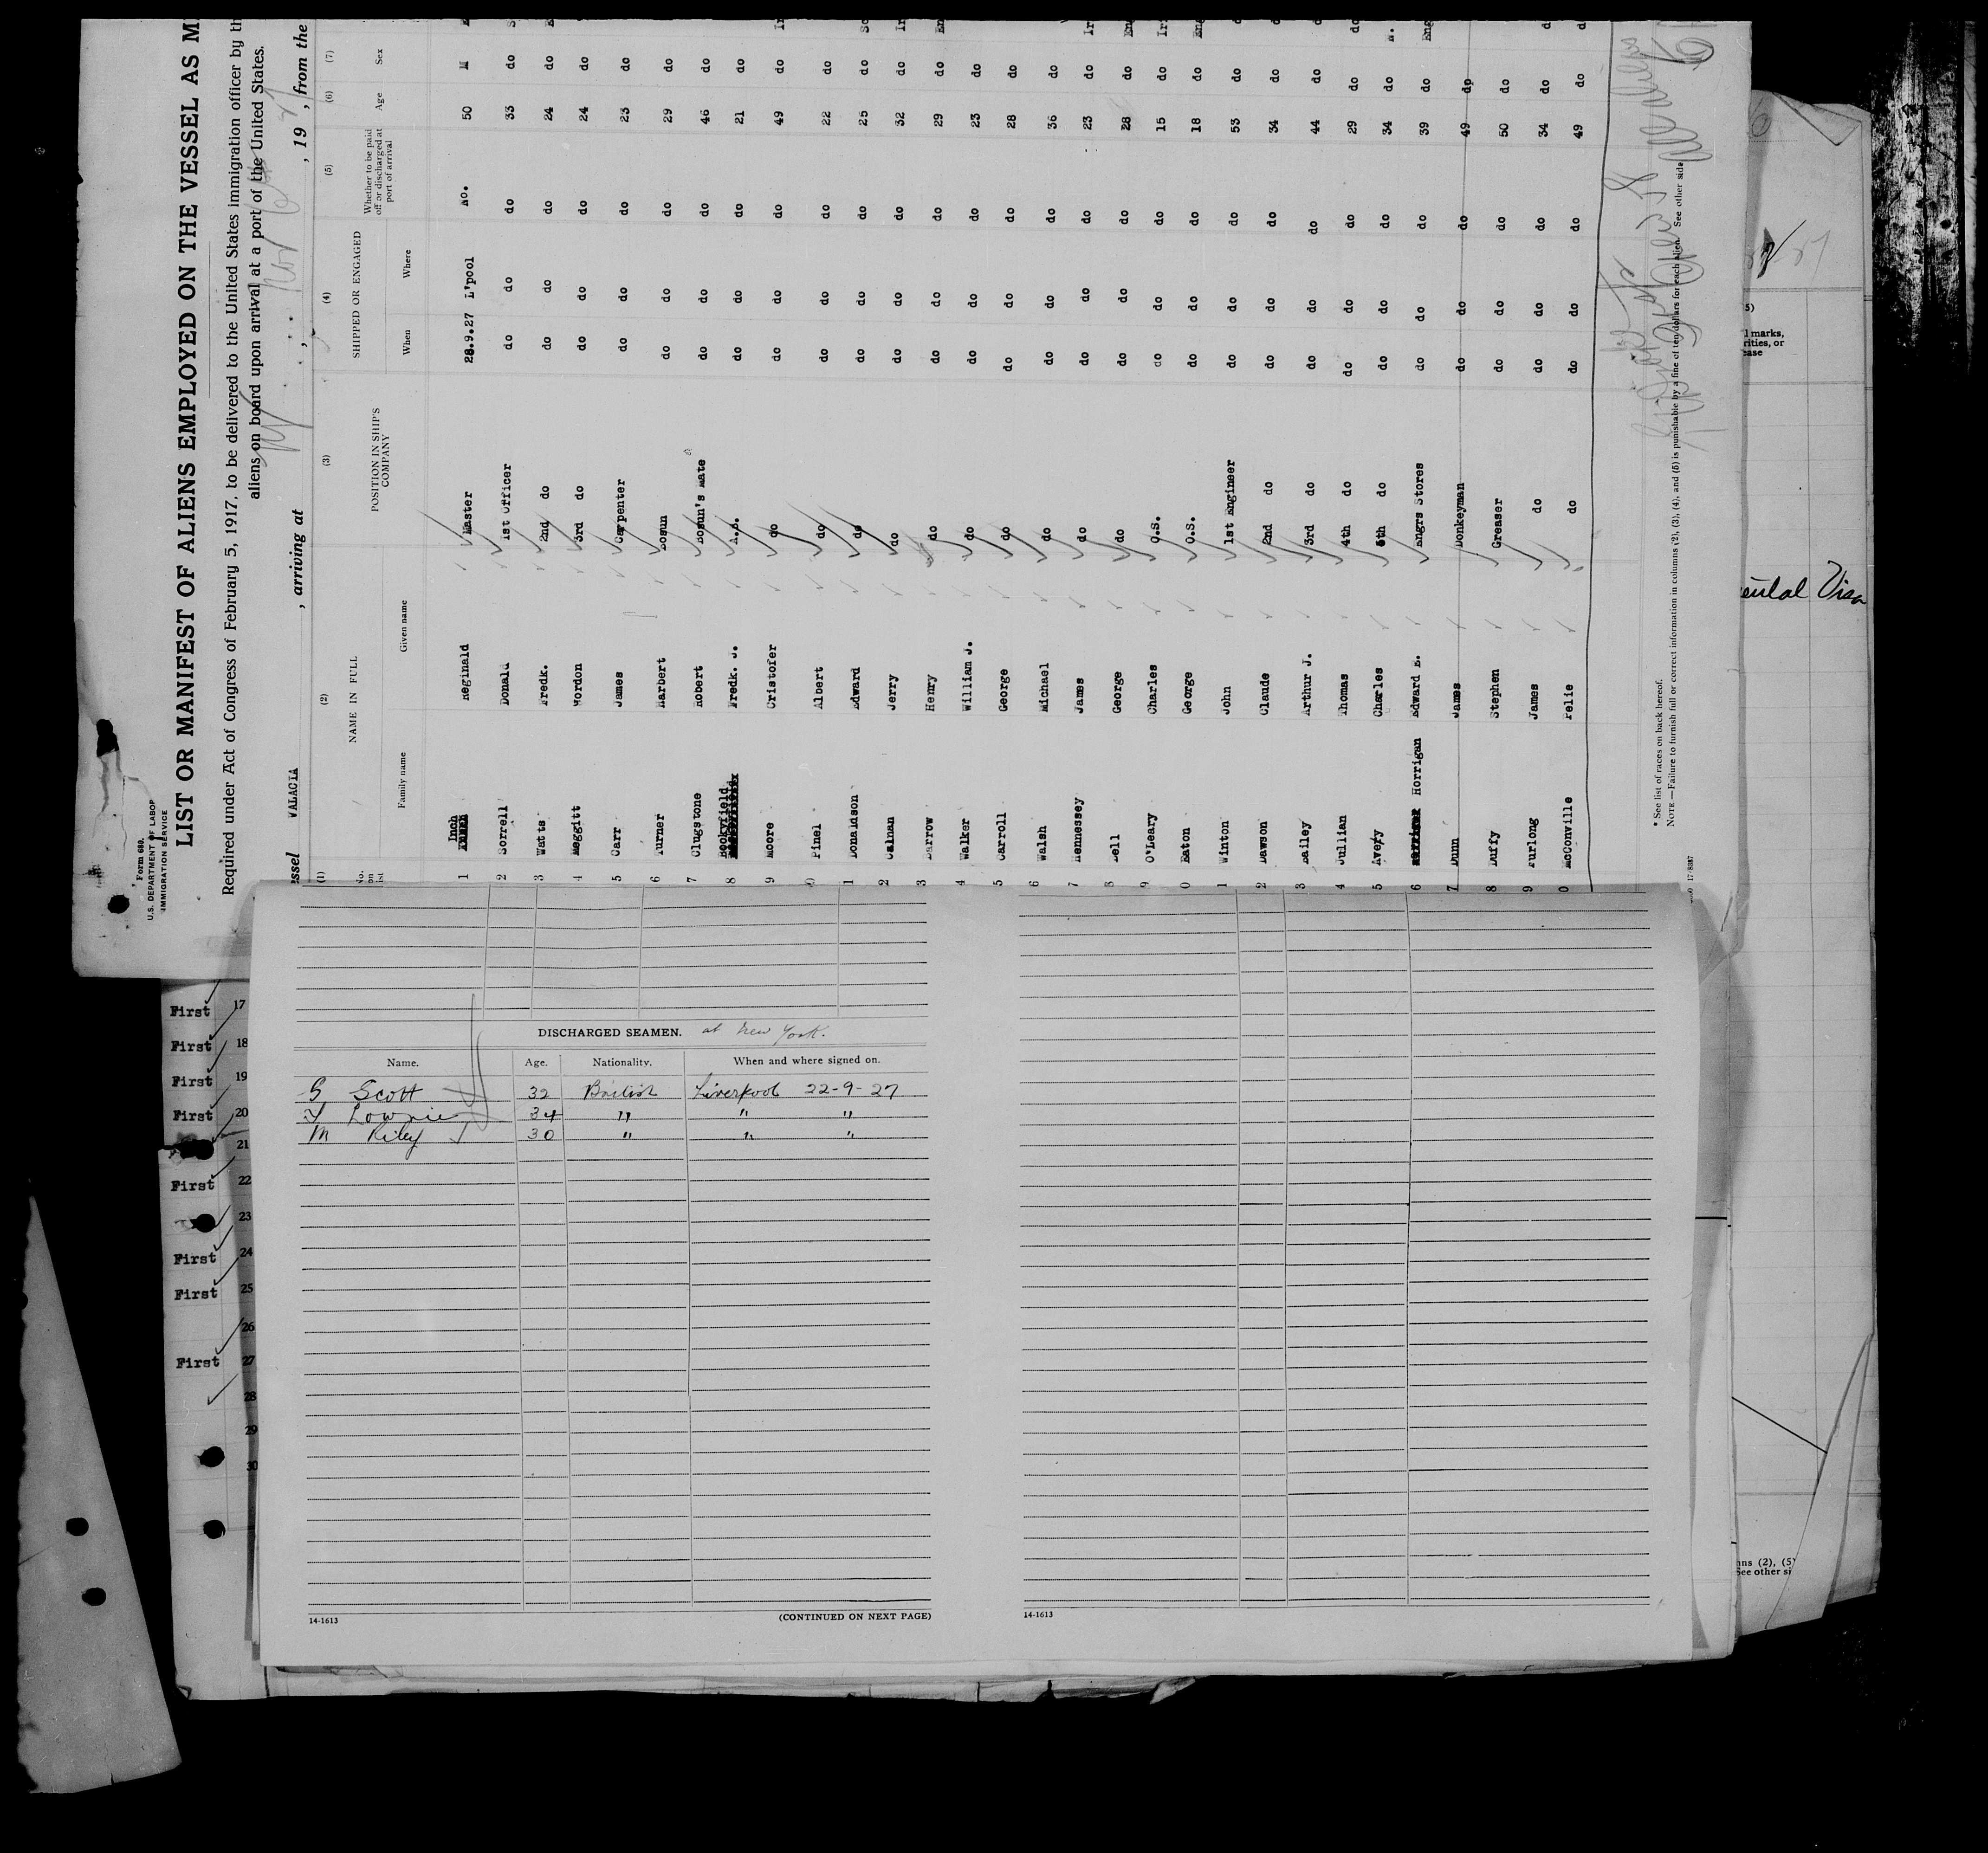 Form 680.
U.S. DEPARTMENT OF LABOR
IMMIGRATION SERVICE
LIST OR MANIFEST OF ALIENS EMPLOYED ON THE VESSEL AS M
Required under Act of Congress of February 5, 1917, to be delivered to the United States immigration officer by th
aliens on board upon arrival at a port of the United States.
essel VALACIA , arriving at , , 19 , from the
(1) (2) (3) (4) (5) (6) (7)
No. on list NAME IN FULL POSITION IN SHIP'S COMPANY SHIPPED OR ENGAGED Whether to be paid off or discharged at port of arrival Age Sex
Family name Given name When Where
1 Inch Reginald Master 28.9.27 L'pool No. 50 M
2 Sorrell Donald 1st Officer do do do 33 do
3 Watts Fredk. 2nd do do do do 24 do
4 Meggitt Gordon 3rd do do do do 24 do
5 Carr James Carpenter do do do 23 do
6 Turner Harbert Bosun do do do 29 do
7 Clugstone Robert Bosun's Mate do do do 46 do
8 Beckyfield Fredk. J. A.B. do do do 21 do
9 Moore Cristofer do do do do 49 do
0 Pinel Albert do do do do 22 do
1 Donaldson Edward do do do do 25 do
2 Calnan Jerry do do do do 32 do
3 Barrow Henry do do do do 29 do
4 Walker William J. do do do do 23 do
5 Carroll George do do do do 28 do
6 Walsh Michael do do do do 36 do
7 Hennessey James do do do do 23 do
8 Bell George do do do do 28 do
9 O'Leary Charles O.S. do do do 15 do
0 Eaton George O.S. do do do 18 do
1 Winton John 1st Engineer do do do 53 do
2 Dawson Claude 2nd do do do do 34 do
3 Bailey Arthur J. 3rd do do do do 44 do
4 Jullian Thomas 4th do do do do 29 do
5 Avery Charles 5th do do do do 34 do
6 Horrigan Edward E. Engrs Stores do do do 39 do
7 Dunn James Donkeyman do do do 49 do
8 Duffy Stephen Greaser do do do 50 do
9 Furlong James do do do do 34 do
0 McConville Felie do do do do 49 do
* See list of races on back hereof.
NOTE.—Failure to furnish full or correct information in columns (2), (3), (4), and (5) is punishable by a fine of ten dollars for each alien. See other side.
DISCHARGED SEAMEN. at New York.
Name. Age. Nationality. When and where signed on.
G Scott 32 British Liverpool 22-9-27
Lownie 34 " " "
M Riley 30 " " "
14-1613 (CONTINUED ON NEXT PAGE) 14-1613
First 17
First 18
First 19
First 20
21
First 22
23
First 24
First 25
26
First 27
28
29
30
5)
l marks,
rities, or
ease
Visa
ns (2), (5)
See other si